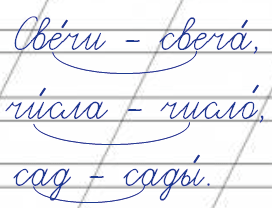 Све́чи – свеча́,
чи́сла – число́,
сад – сады́.